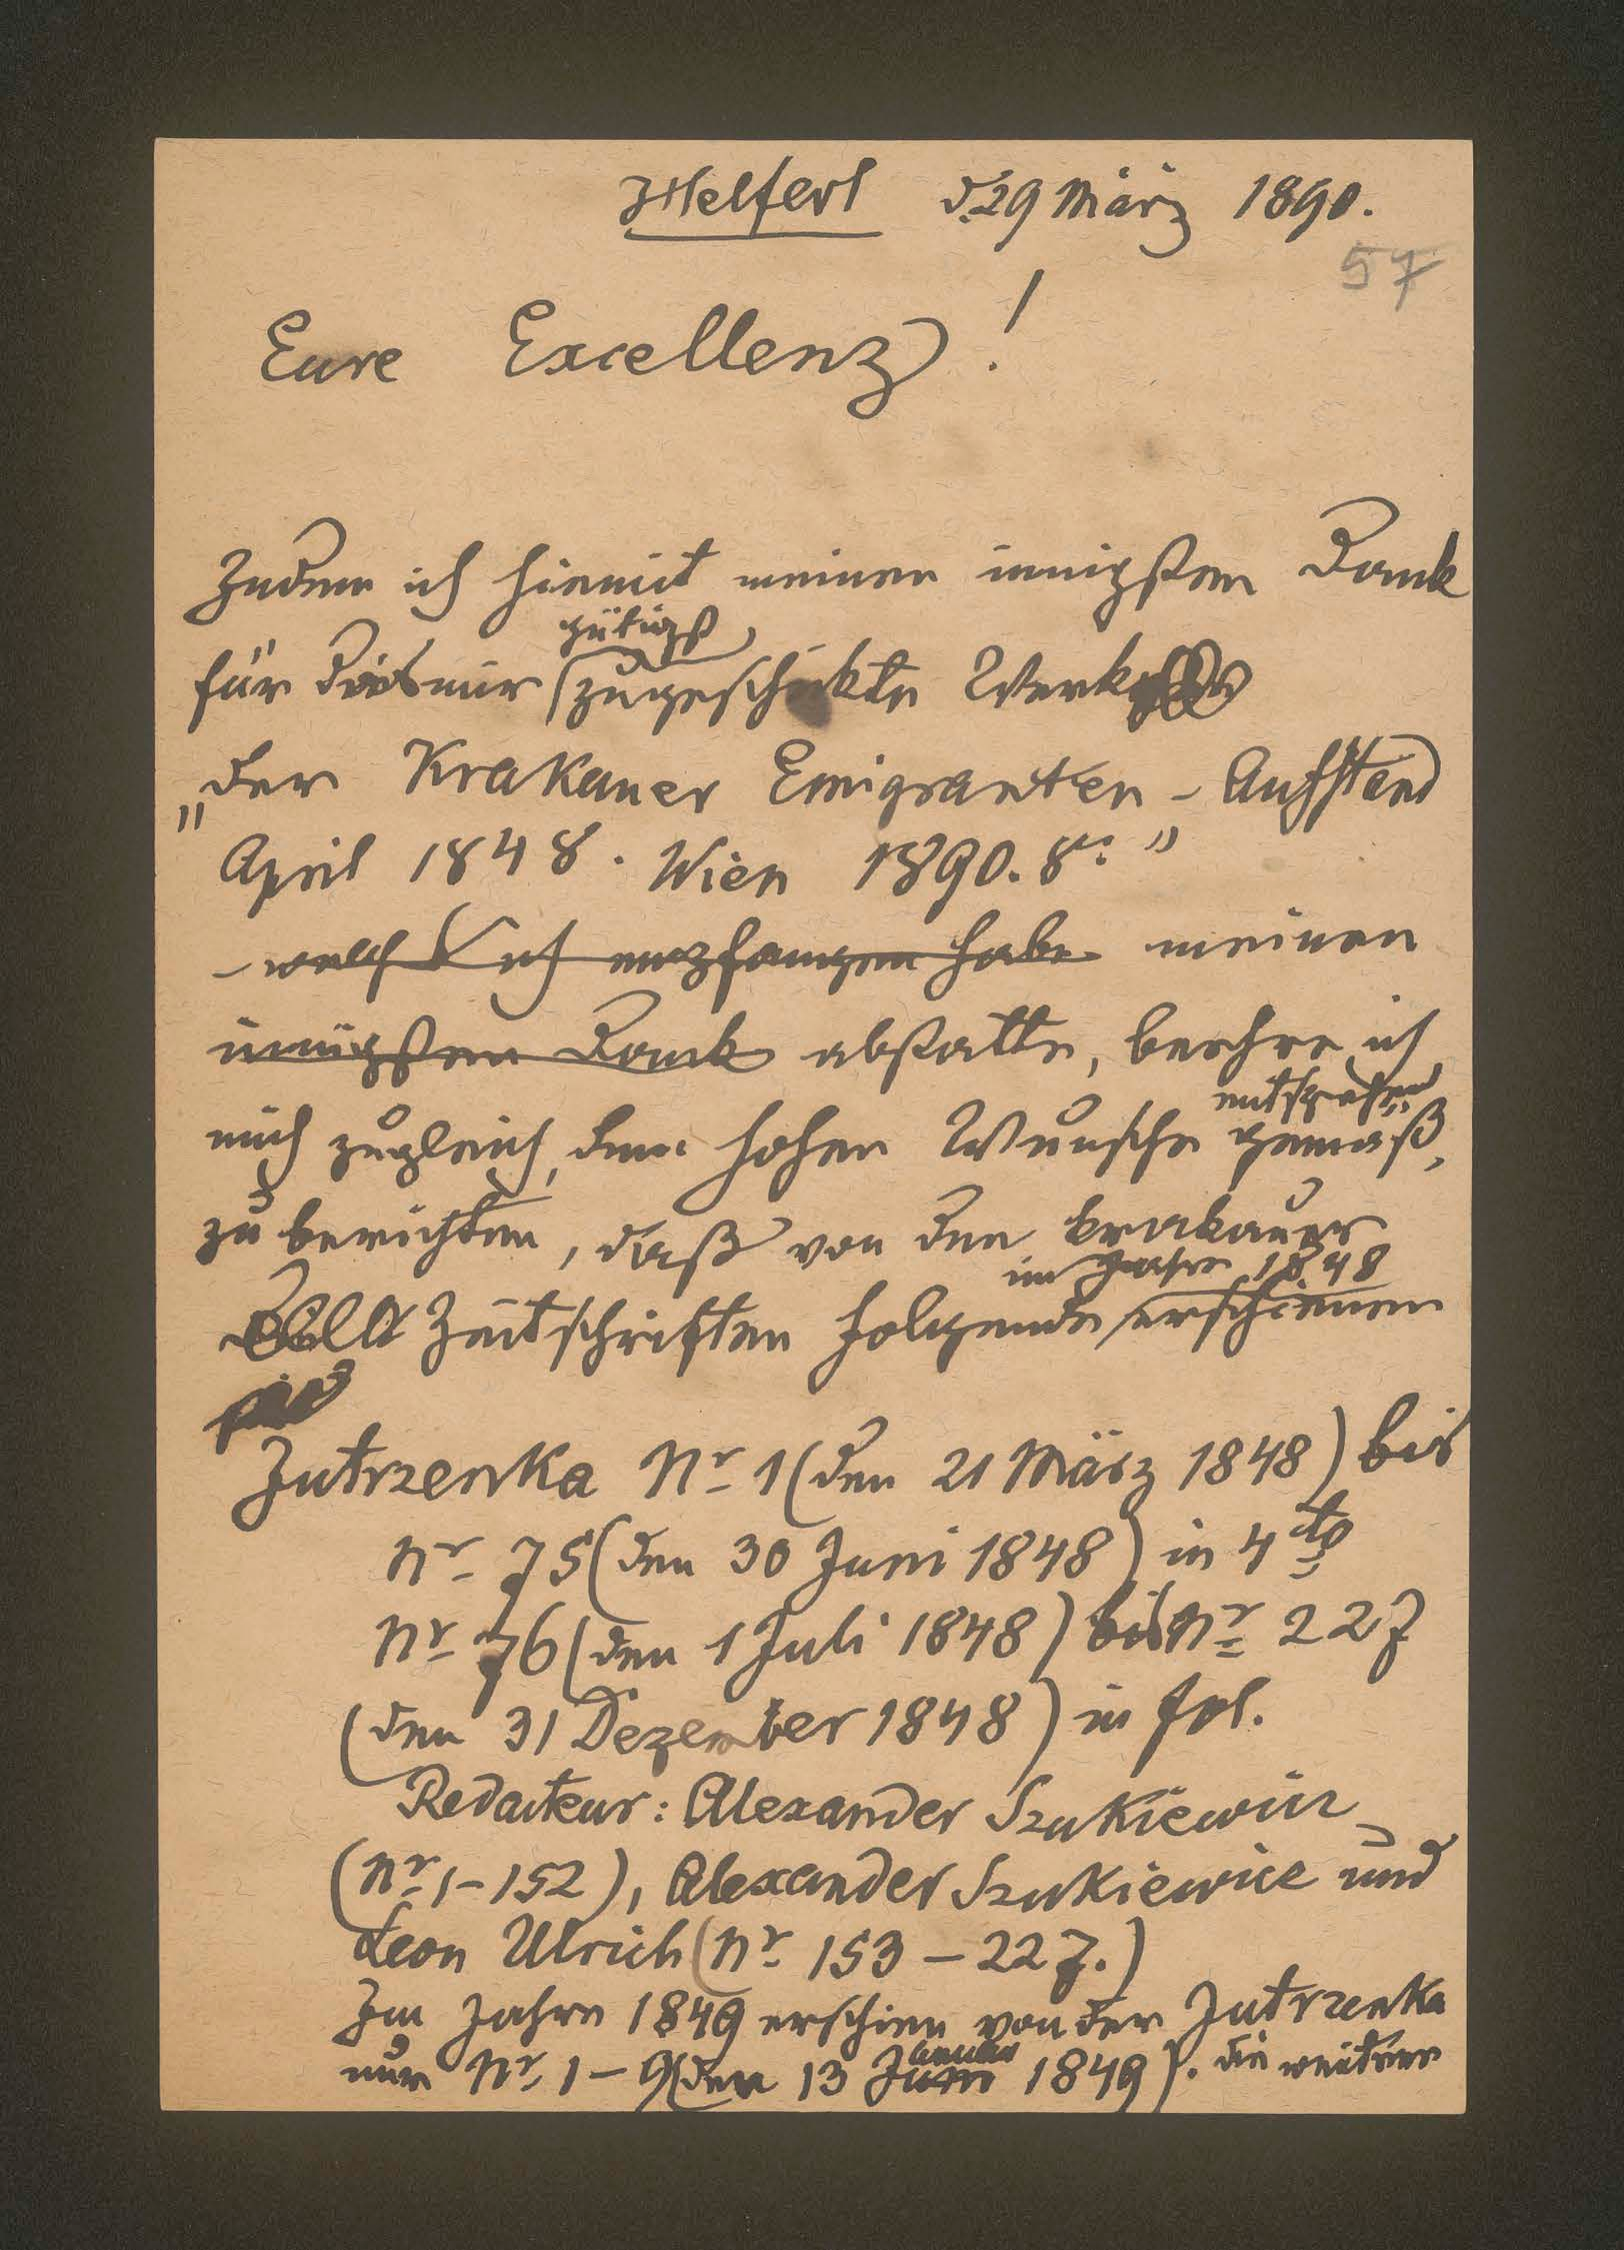 Helfert d. 29 März 1890.
57
Eure Excellenz!
Indem ich hiemit meinen innigsten Dank
gütigst
für das mir zugeschickte Werk
„Der Krakauer Emigranten-Aufstand
April 1848. Wien 1890. 8°."
– welch ich empfangen habe meinen
innigsten Dank abstatte, beehre ich
entsprechend
mich zugleich, dem hohen Wunsche gemäß,
zu berichten, daß von den krakauer
im Jahre 1848
Zeitschriften folgende erschienen
Jutrzenka Nr 1 (den 21 März 1848) bis
Nr 75 (den 30 Juni 1848) in 4to
Nr 76 (den 1 Juli 1848) bis Nr 227
(den 31 Dezember 1848) in fol.
Redacteur: Alexander Szukiewicz
(Nr 1–152), Alexander Szukiewicz und
Leon Ulrich (Nr 153–227.)
Im Jahre 1849 erschien von der Jutrzenka
anuar
nur Nr 1–9 (den 13 Juni 1849). Die weitere